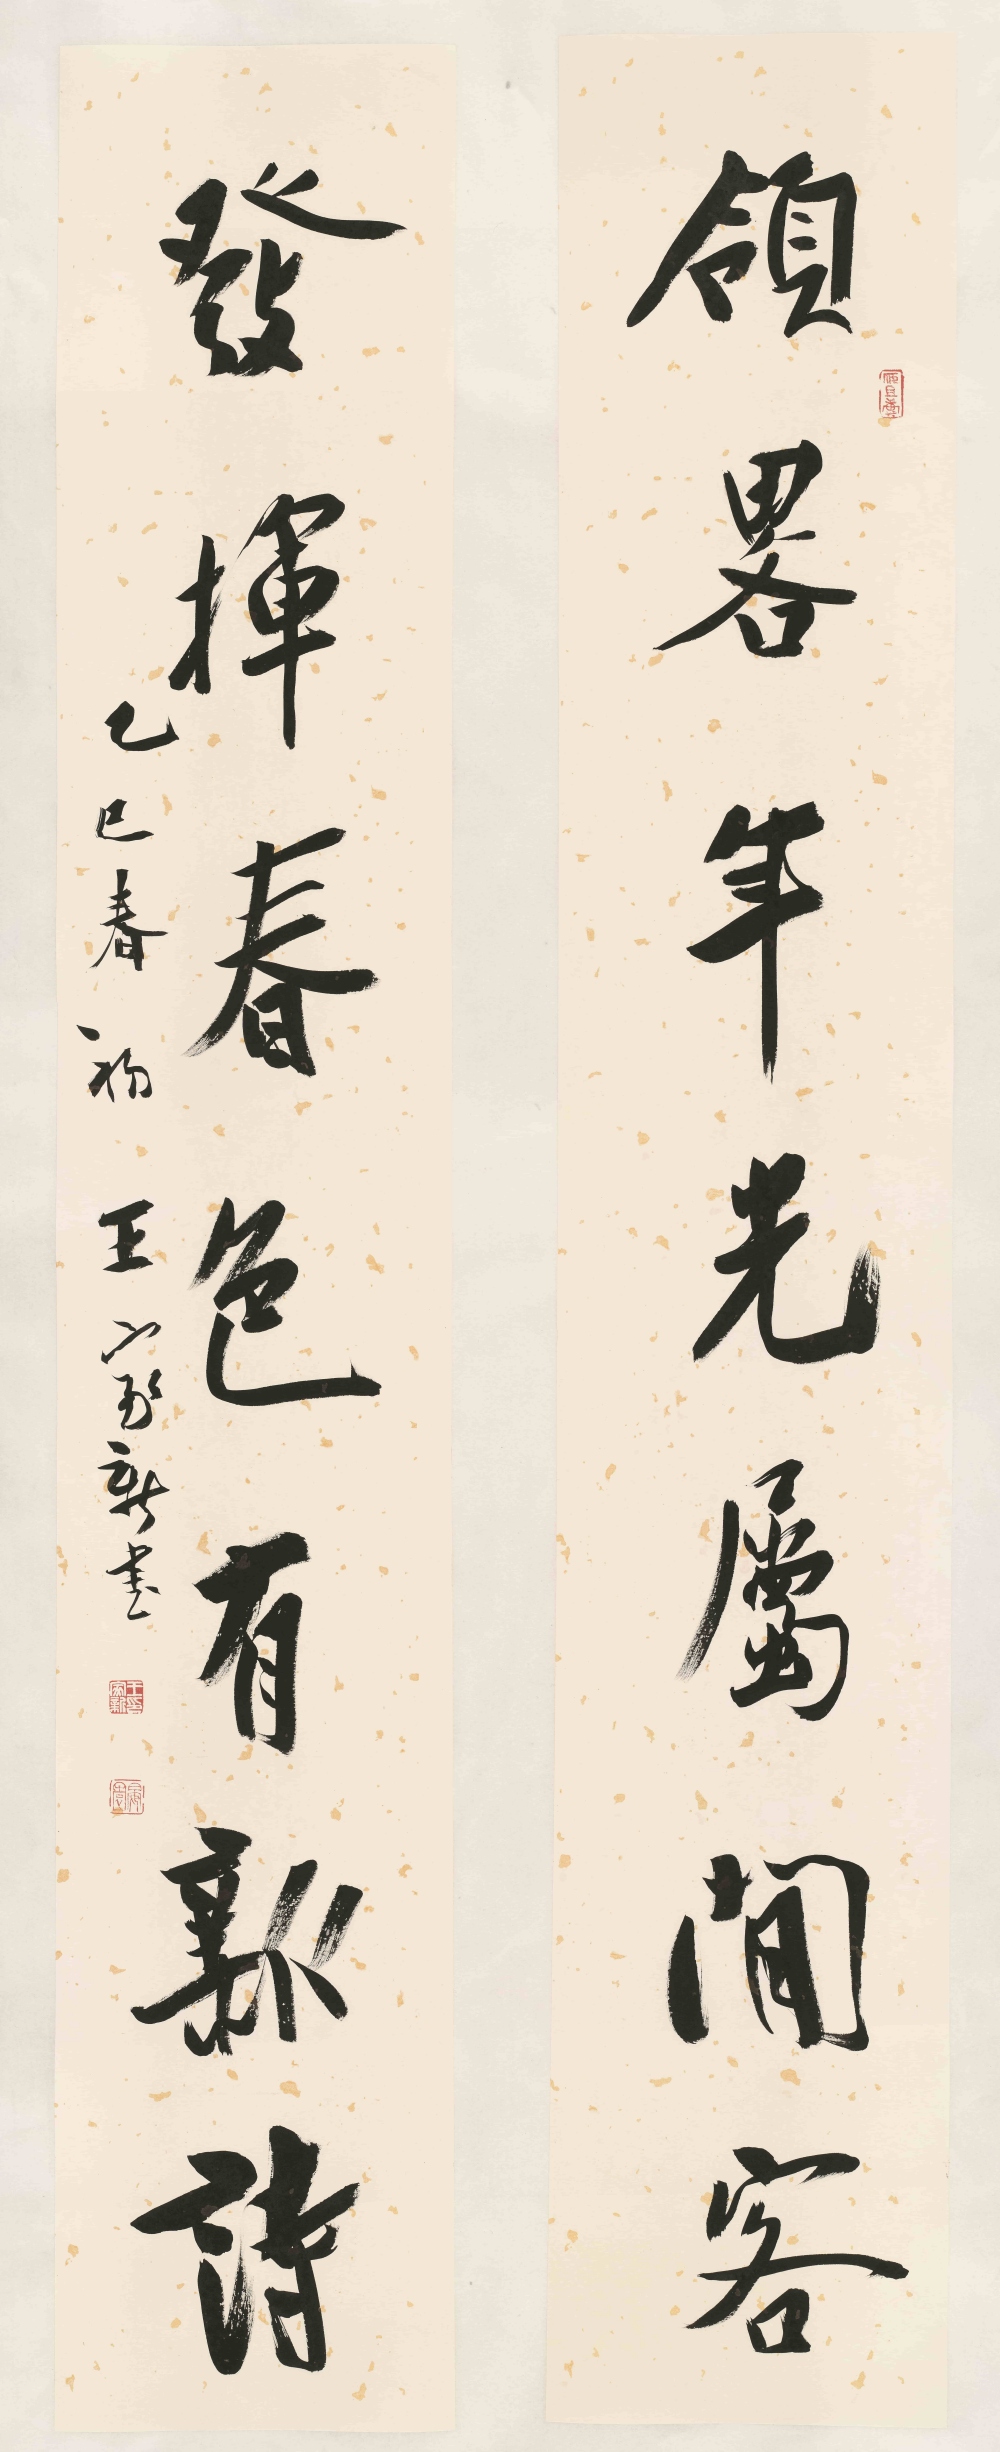 領畧年光屬閒客
發揮春色有新詩
乙巳春初 王家新書
王家新印